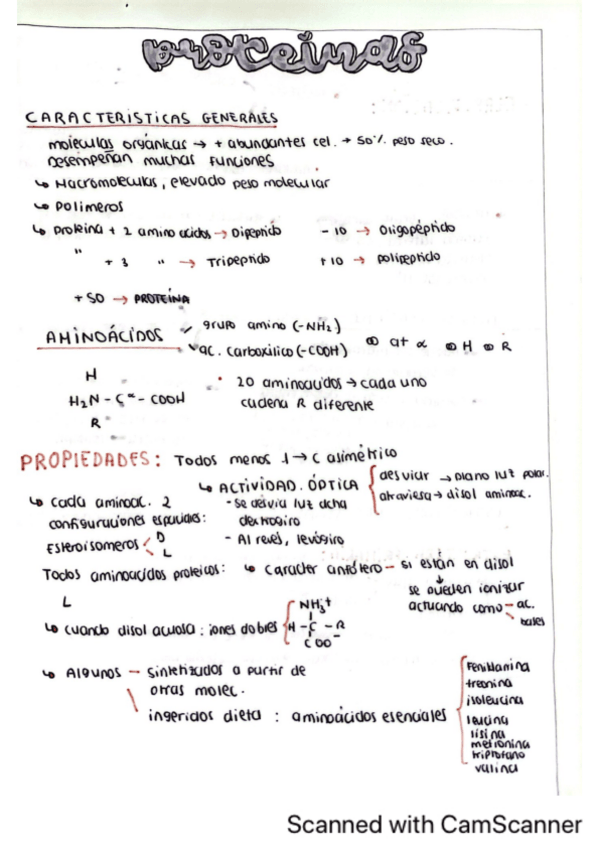 proteínas
CARACTERISTICAS GENERALES
moleculas orgánicas → + abundantes cel. → 50% peso seco.
Desempeñan muchas funciones
↳ Macromoleculas, elevado peso molecular
↳ Polimeros
↳ proteina + 2 amino acidos → Dipeptido - 10 → Oligopéptido
" + 3 " → Tripeptido + 10 → polipeptido
+ 50 → PROTEÍNA
AMINOÁCIDOS grupo amino (-NH₂)
ac. carboxilico (-COOH) at α H R
H
H₂N - Cα - COOH
R
• 20 aminoacidos → cada uno
cadena R diferente
PROPIEDADES: Todos menos 1 → C asimétrico
↳ ACTIVIDAD. ÓPTICA desviar → plano luz polar.
atraviesa → disol aminoac.
- Se desvia luz dcha
dextrogiro
- Al revés, levógiro
↳ Cada aminoac. 2
configuraciones espaciales:
Esteroisomeros D
L
Todos aminoacidos proteicos:
L
↳ caracter anfótero - si están en disol
↓
se pueden ionizar
actuando como - ac.
bases
↳ cuando disol acuosa: iones dobles
NH₃⁺
H - C - R
COO⁻
↳ Algunos - sintetizados a partir de
otras molec.
ingeridos dieta : aminoácidos esenciales
Fenilalanina
treonina
isoleucina
leucina
lisina
metionina
triptofano
valina
Scanned with CamScanner